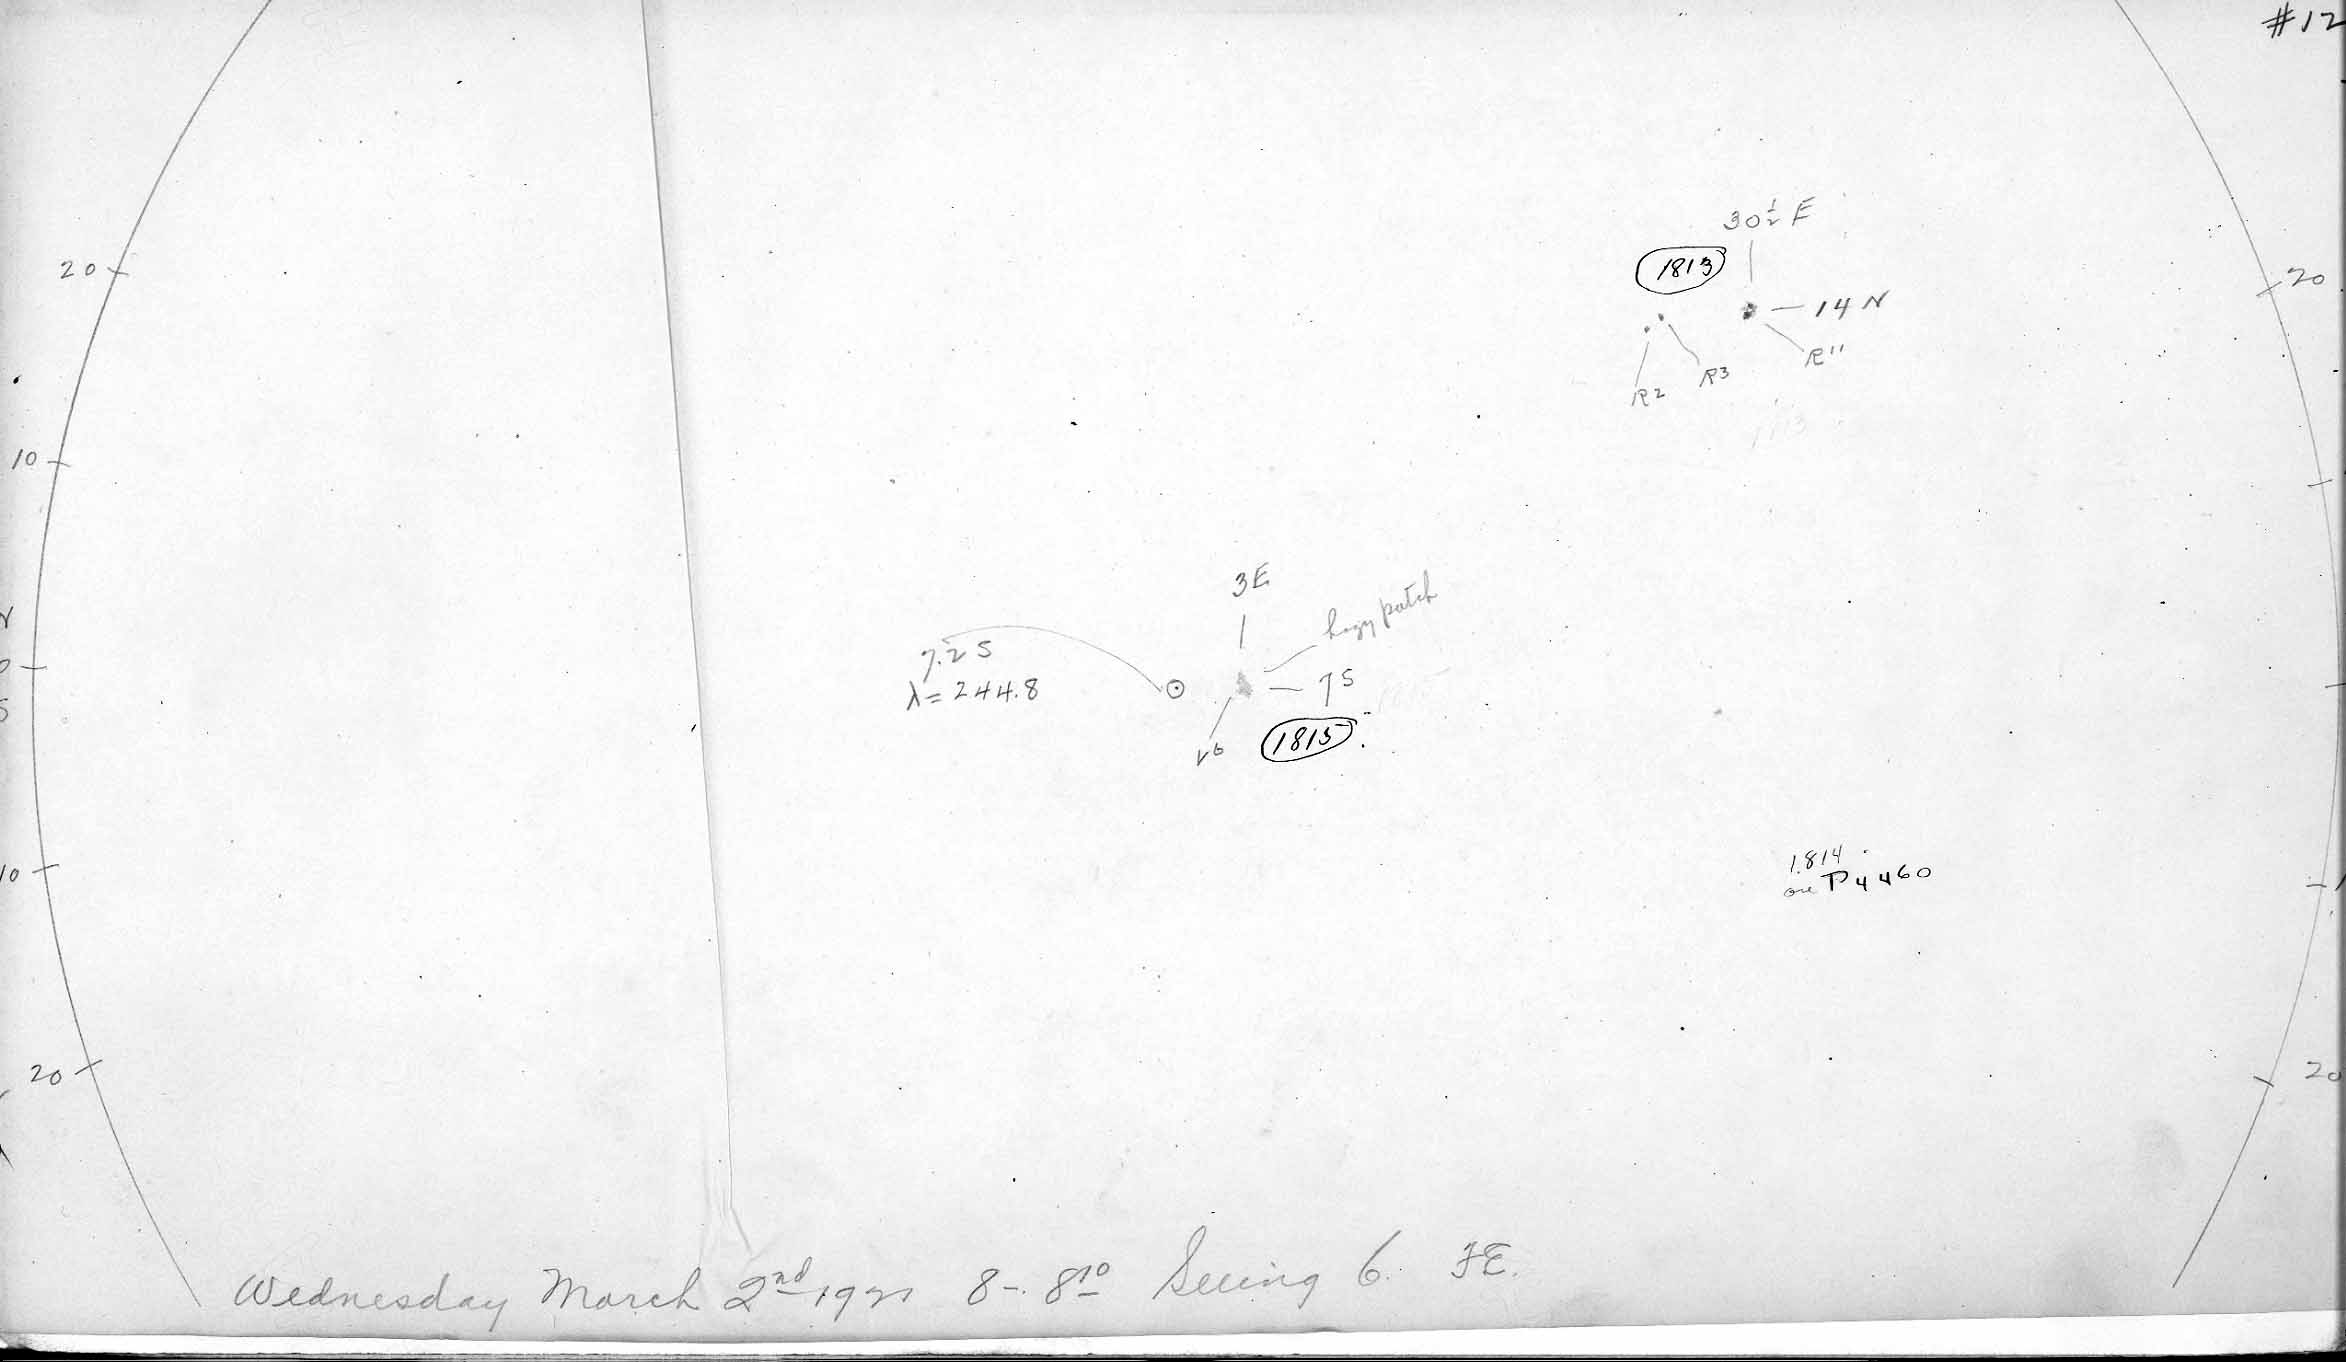 #12
20
20
30½ E
1813
14 N
R11
R3
R2
10
3E
hazy patch
7.2 S
λ = 244.8
7 S
N
0
S
V6
1815
1814
one P 4460
10
20
20
Wednesday March 2nd 1921 8 – 8 10 Seeing 6. FE.